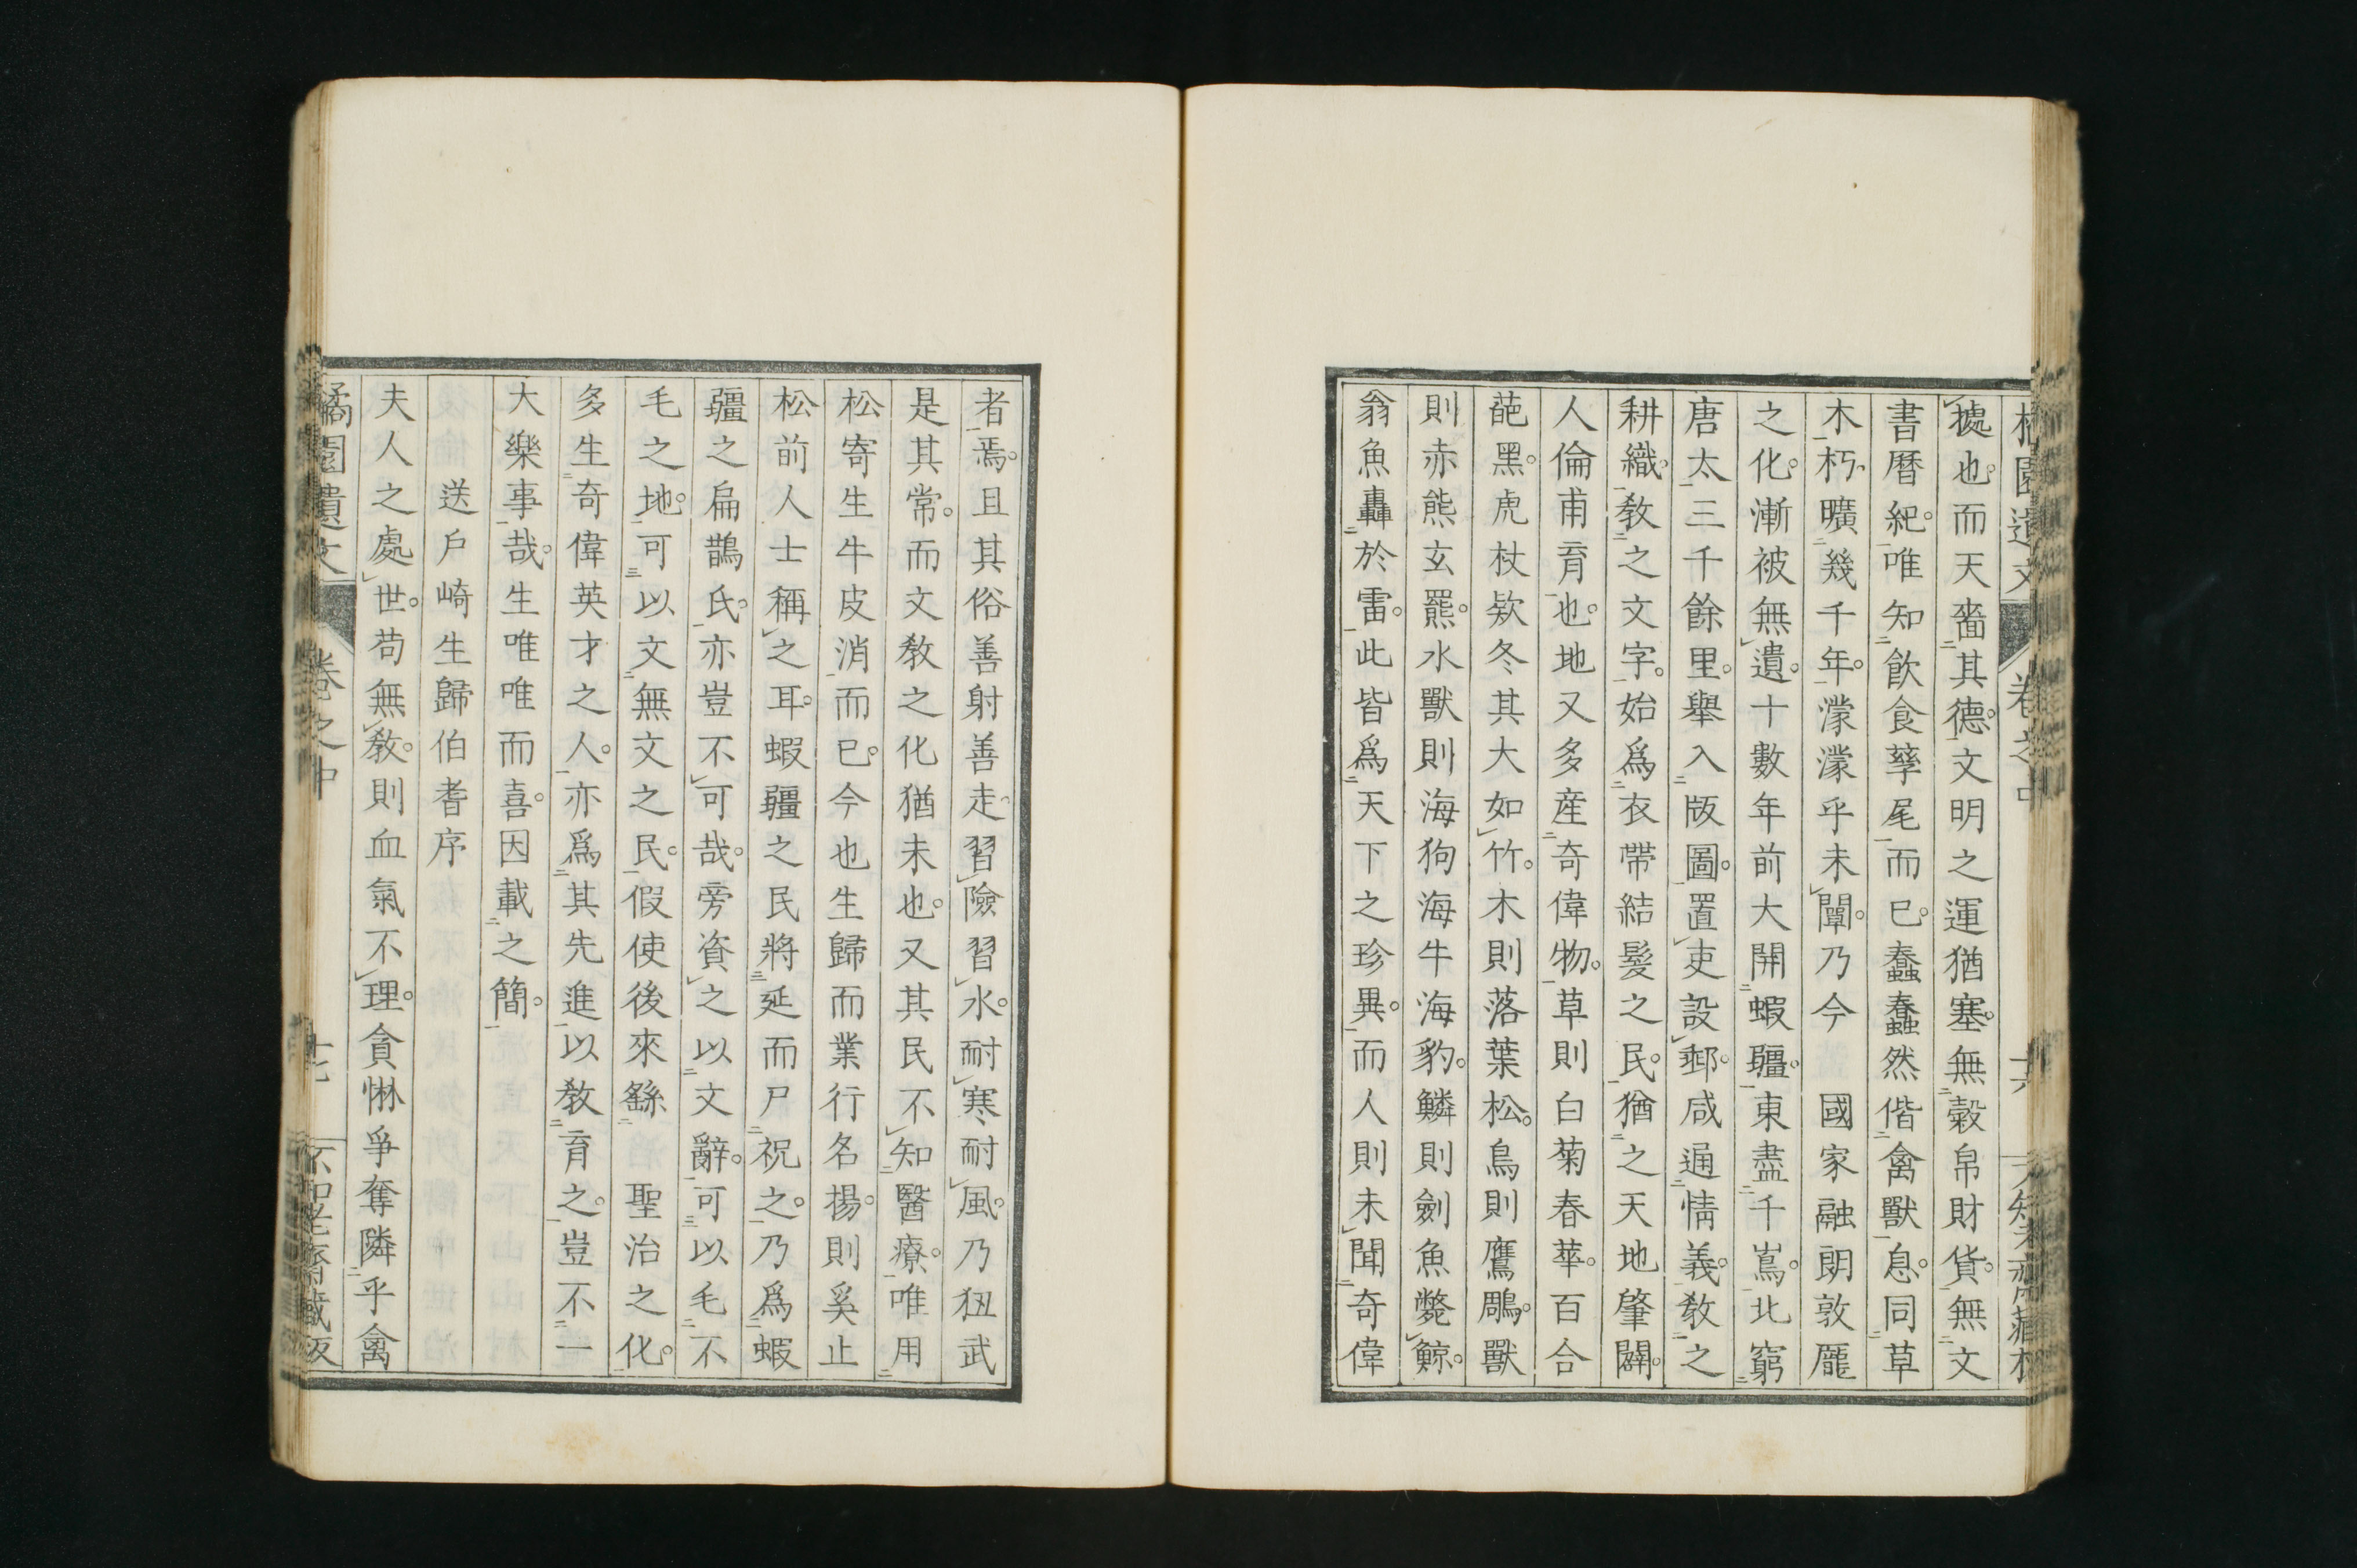 橘園遺文 卷之中 十六
㯫也。而天嗇其德。文明之運猶塞。無穀帛財貨。無文
書曆紀。唯知飮食孳尾而已。蠢蠢然偕禽獸息。同草
木朽。曠幾千年。濛濛乎未闡。乃今 國家融朗敦厖
之化。漸被無遺。十數年前大開蝦疆。東盡千嶌。北窮
唐太三千餘里。舉入版圖。置吏設郵。咸通情義。敎之
耕織。敎之文字。始爲衣帶結髮之民。猶之天地肇闢。
人倫甫育也。地又多産奇偉物。草則白菊春華。百合
葩黑。虎杖欵冬其大如竹。木則落葉松。鳥則鷹鵰。獸
則赤熊玄羆。水獸則海狗海牛海豹。鱗則劍魚斃鯨。
翁魚轟於雷。此皆爲天下之珍異。而人則未聞奇偉
者焉。且其俗善射善走。習險習水。耐寒耐風。乃狃武
是其常。而文敎之化猶未也。又其民不知醫療。唯用
松寄生牛皮消而已。今也生歸而業行名揚。則奚止
松前人士稱之耳。蝦疆之民將延而尸祝之。乃爲蝦
疆之扁鵲氏。亦豈不可哉。旁資之以文辭。可以毛不
毛之地。可以文無文之民。假使後來繇 聖治之化。
多生奇偉英才之人。亦爲其先進以敎育之。豈不一
大樂事哉。生唯唯而喜。因載之簡。
送戶崎生歸伯耆序
夫人之處世。苟無敎。則血氣不理。貪惏爭奪隣乎禽
橘園遺文 卷之中 十七 不知老齋藏板